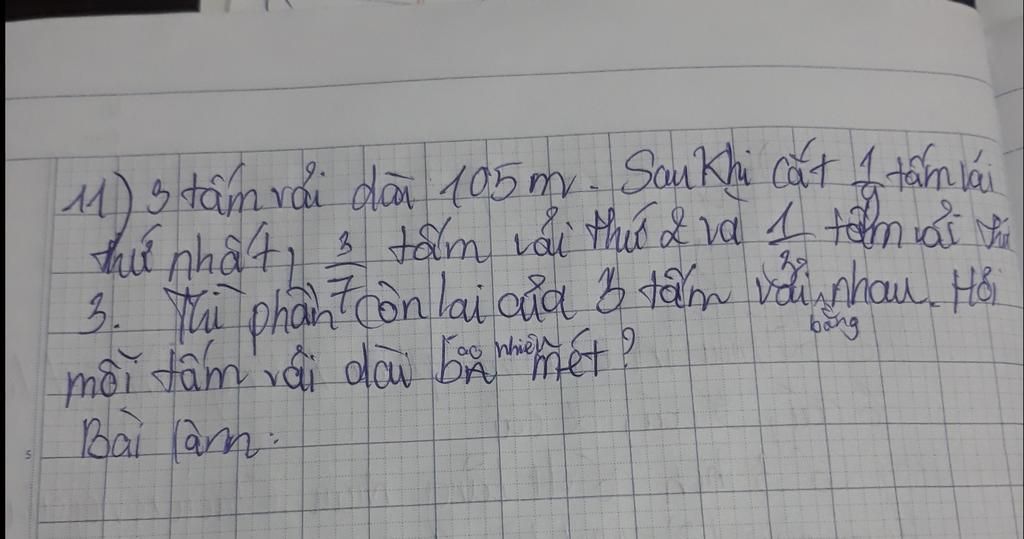 11) 3 tấm vải dài 105m. Sau Khi cắt 1/9 tấm vải
thứ nhất, 3/7 tấm vải thứ 2 và 1/3 tấm vải thứ
3. Thì phần còn lại của 3 tấm vải bằng nhau. Hỏi
mỗi tấm vải dài bao nhiêu mét?
Bài làm: